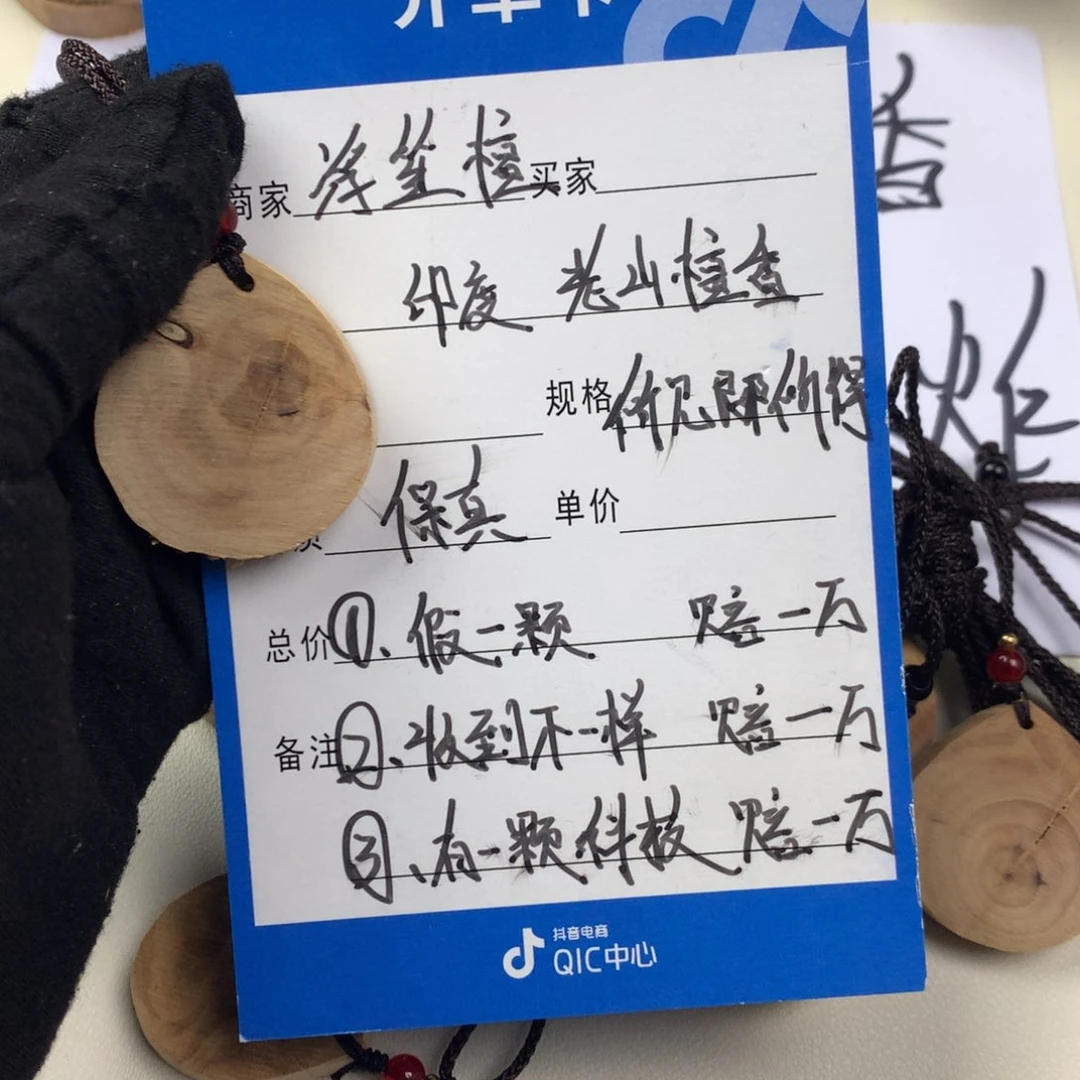 开单卡
商家 岑笙檀 买家
印度 老山檀香
规格 所见即所得
质 保真 单价
总价 ①、假一颗 赔一万
备注 ②、收到不一样 赔一万
③、有一颗科技 赔一万
抖音电商
QIC中心
香
炸